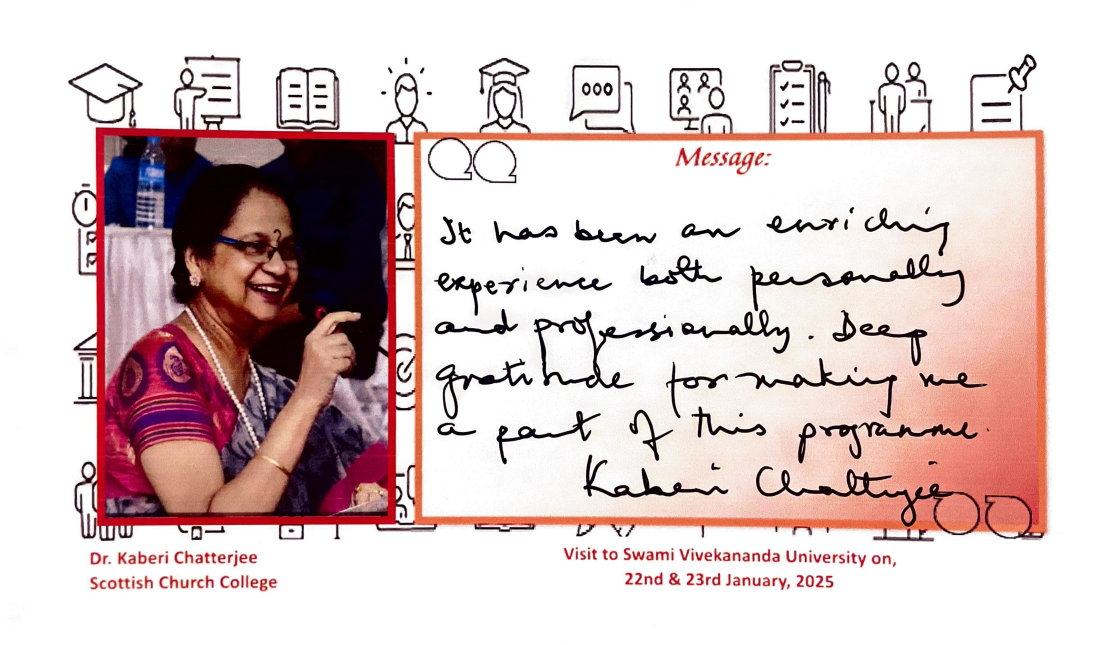 Message:
It has been an enriching
experience both personally
and professionally. Deep
gratitude for making me
a part of this programme.
Kaberi Chatterjee
Dr. Kaberi Chatterjee
Scottish Church College
Visit to Swami Vivekananda University on,
22nd & 23rd January, 2025